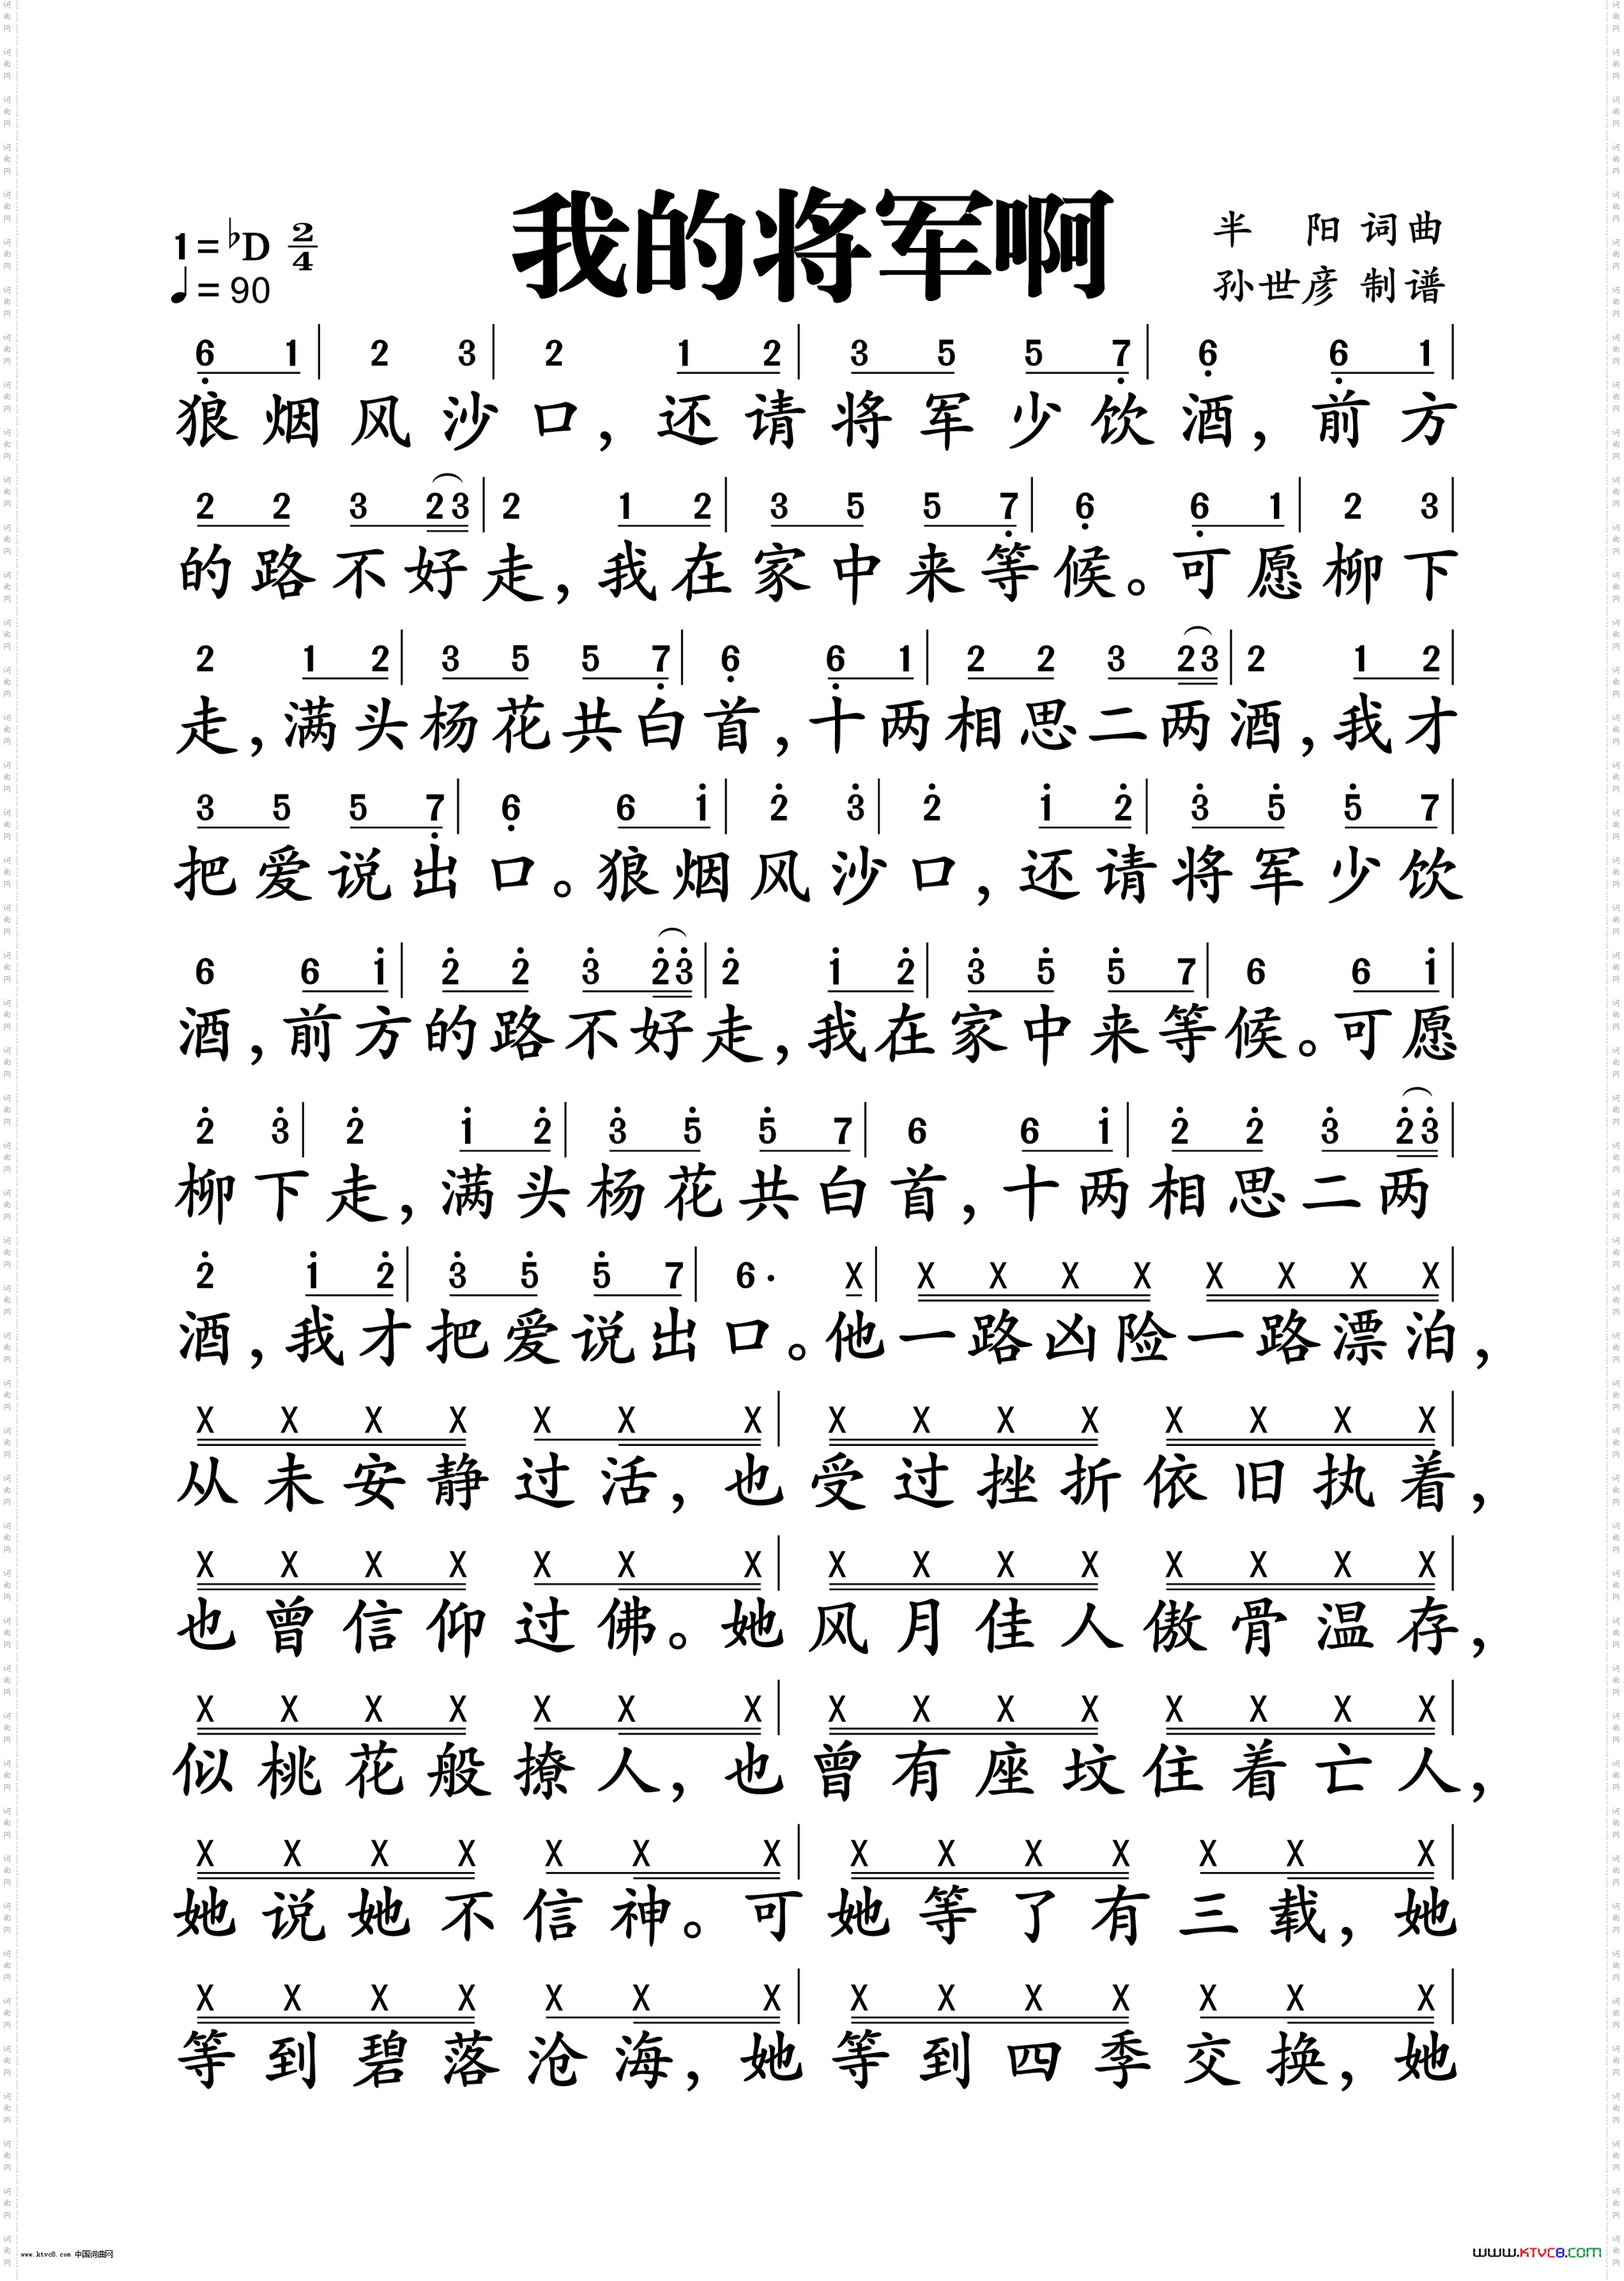 我的将军啊
1=♭D 2/4
♩=90
半 阳 词曲
孙世彦 制谱
6 1 | 2 3 | 2 1 2 | 3 5 5 7 | 6 6 1 |
狼烟风沙口，还请将军少饮酒，前方
2 2 3 2 3 | 2 1 2 | 3 5 5 7 | 6 6 1 | 2 3 |
的路不好走，我在家中来等候。可愿柳下
2 1 2 | 3 5 5 7 | 6 6 1 | 2 2 3 2 3 | 2 1 2 |
走，满头杨花共白首，十两相思二两酒，我才
3 5 5 7 | 6 6 1 | 2 3 | 2 1 2 | 3 5 5 7 |
把爱说出口。狼烟风沙口，还请将军少饮
6 6 1 | 2 2 3 2 3 | 2 1 2 | 3 5 5 7 | 6 6 1 |
酒，前方的路不好走，我在家中来等候。可愿
2 3 | 2 1 2 | 3 5 5 7 | 6 6 1 | 2 2 3 2 3 |
柳下走，满头杨花共白首，十两相思二两
2 1 2 | 3 5 5 7 | 6· X | X X X X X X X X |
酒，我才把爱说出口。他一路凶险一路漂泊，
X X X X X X X | X X X X X X X X |
从未安静过活，也受过挫折依旧执着，
X X X X X X X | X X X X X X X X |
也曾信仰过佛。她风月佳人傲骨温存，
X X X X X X X | X X X X X X X X |
似桃花般撩人，也曾有座坟住着亡人，
X X X X X X X | X X X X X X X |
她说她不信神。可她等了有三载，她
X X X X X X X | X X X X X X X |
等到碧落沧海，她等到四季交换，她
www.ktvc8.com 中国词曲网
www.KTVC8.com